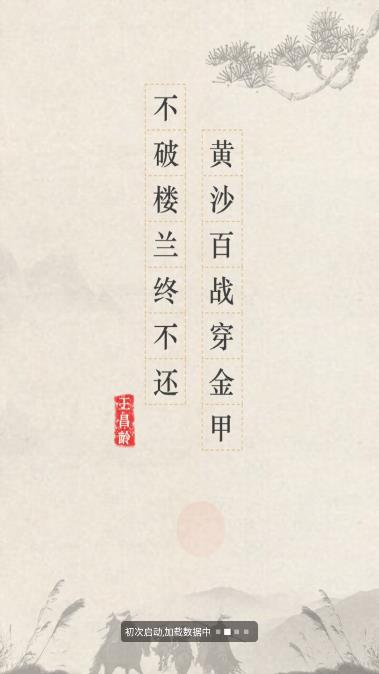 黄沙百战穿金甲
不破楼兰终不还
王昌龄
初次启动,加载数据中